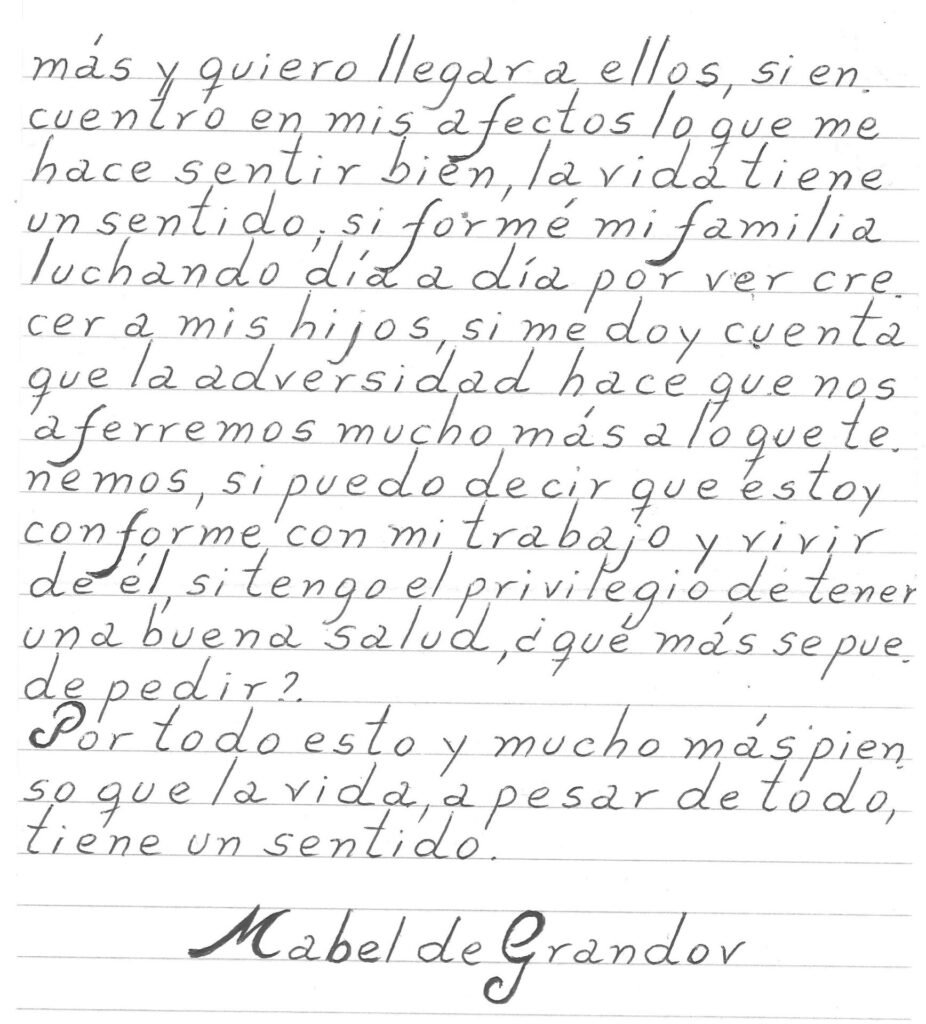 más y quiero llegar a ellos, si en-
cuentro en mis afectos lo que me
hace sentir bien, la vida tiene
un sentido; si formé mi familia
luchando día a día por ver cre-
cer a mis hijos, si me doy cuenta
que la adversidad hace que nos
aferremos mucho más a lo que te-
nemos, si puedo decir que estoy
conforme con mi trabajo y vivir
de él, si tengo el privilegio de tener
una buena salud, ¿qué más se pue-
de pedir?.
Por todo esto y mucho más pien-
so que la vida, a pesar de todo,
tiene un sentido.
Mabel de Grandov